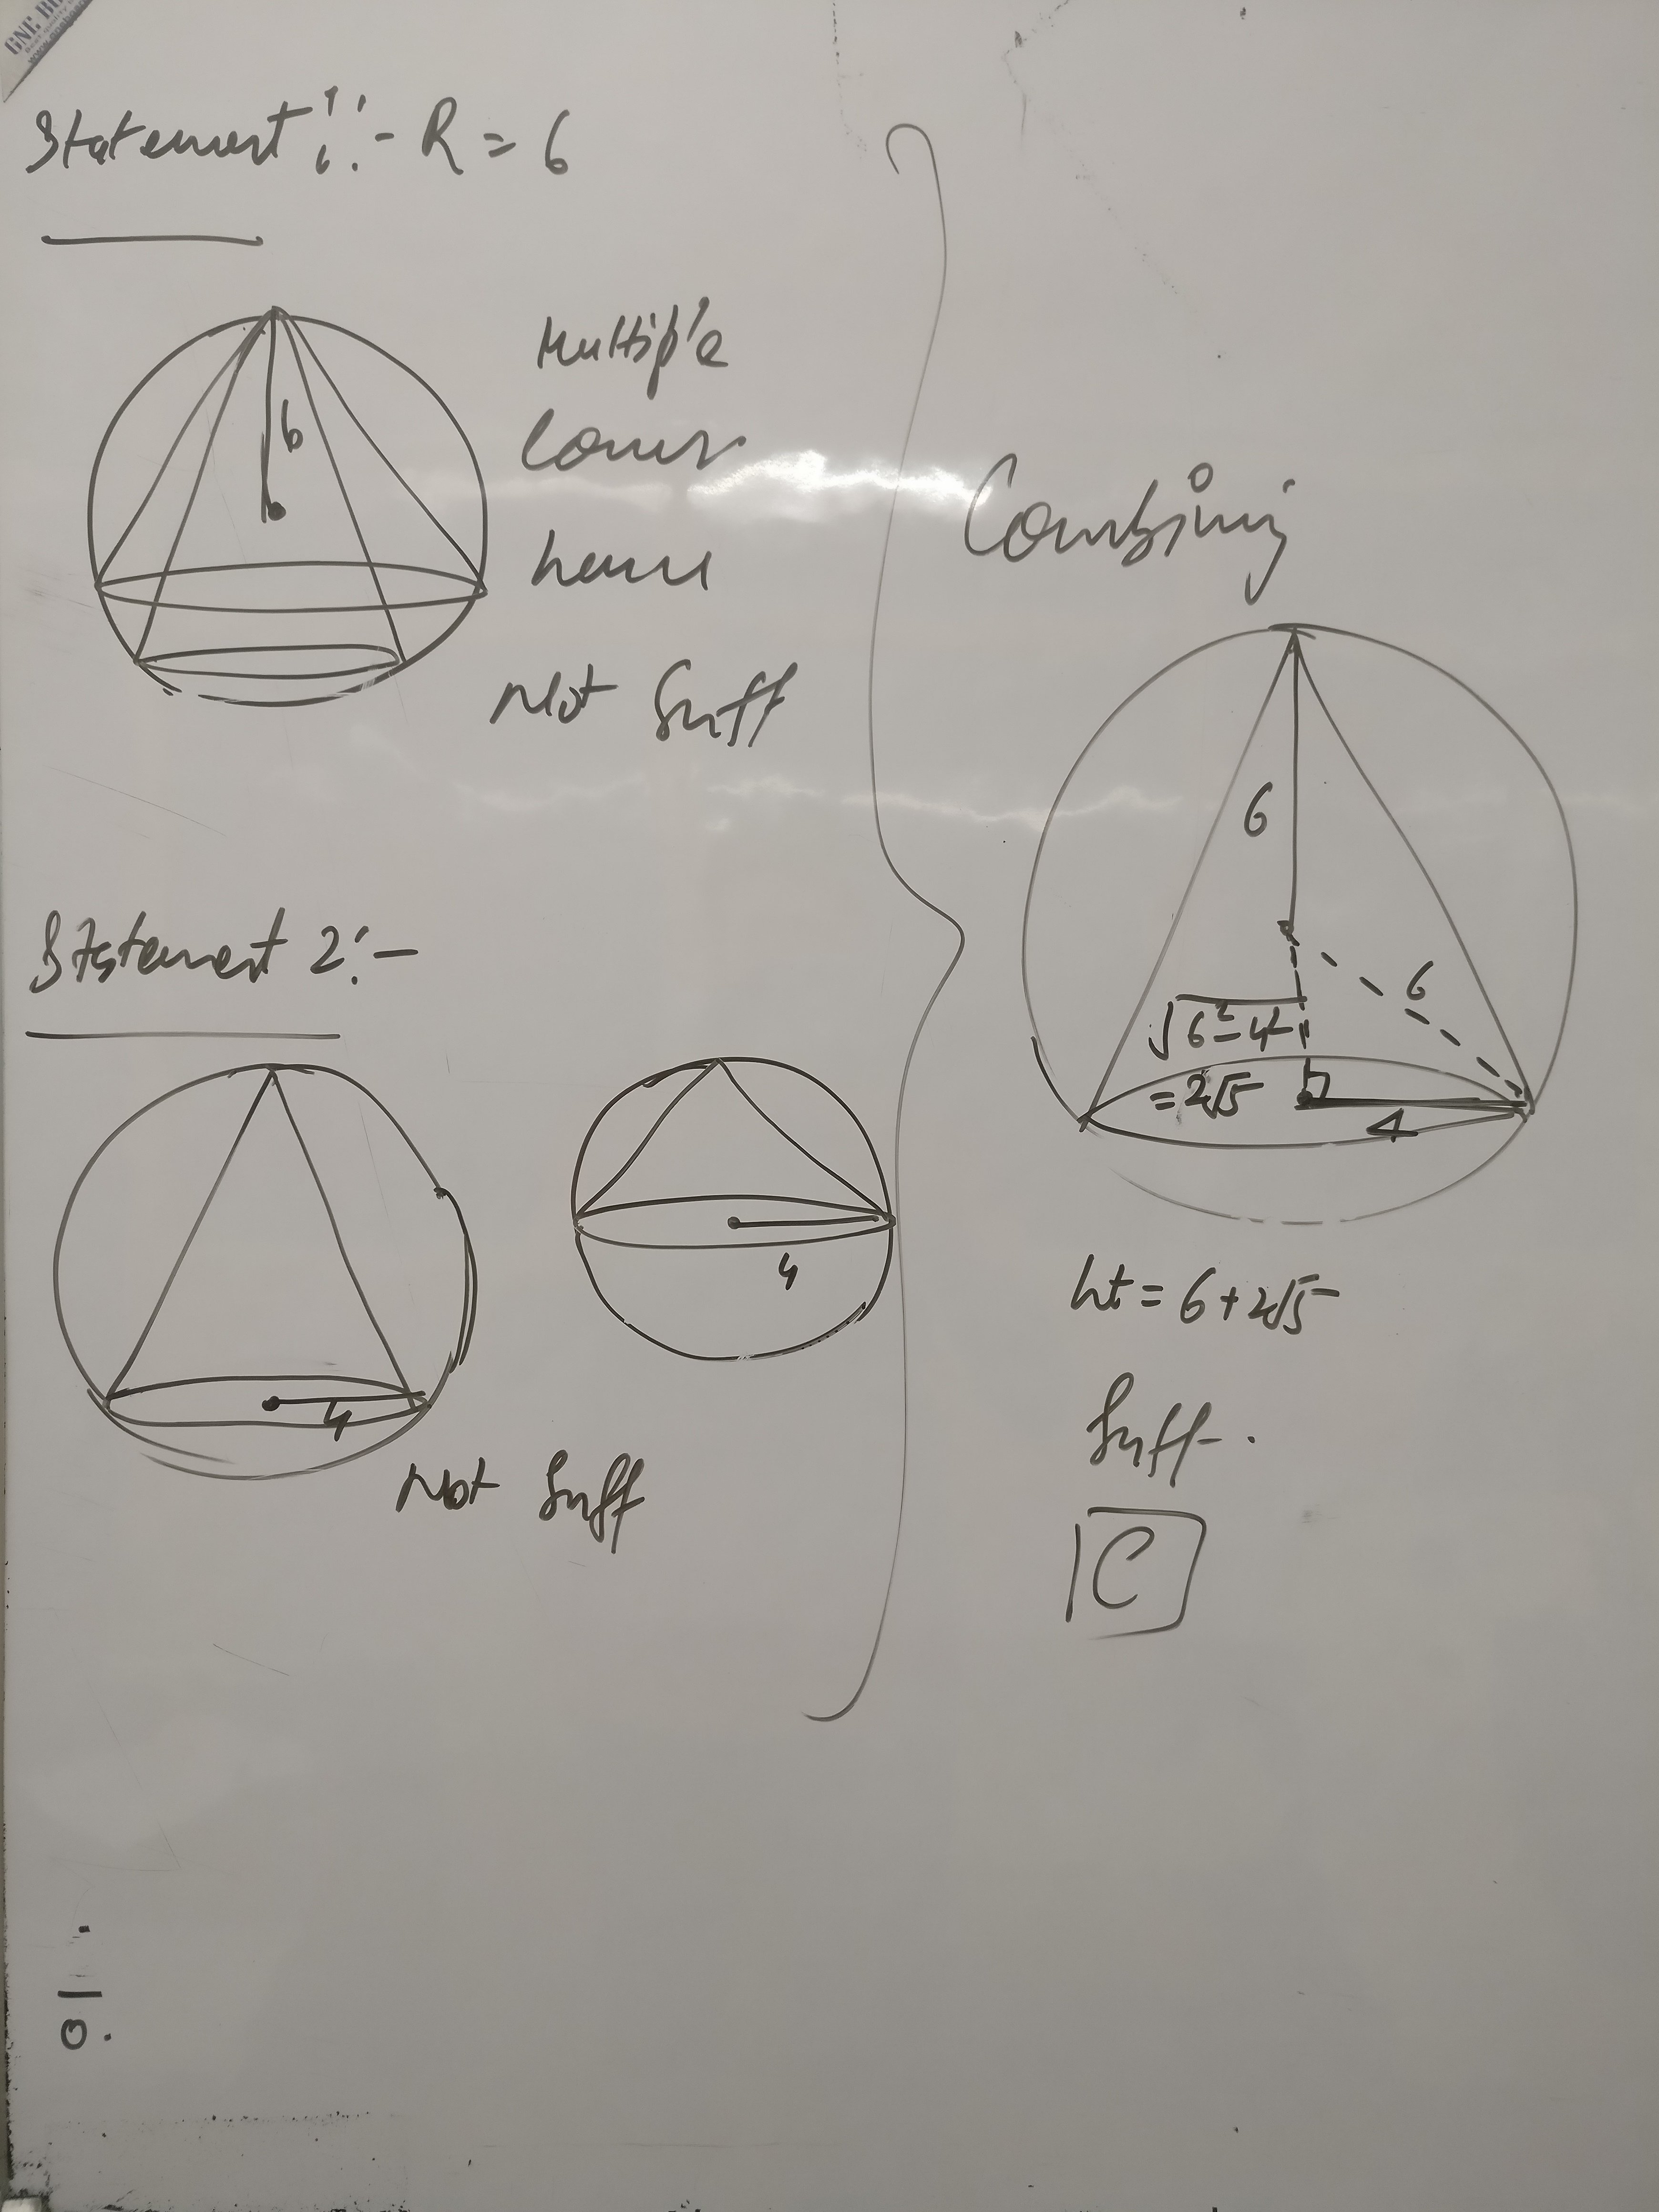 Statement 1:- R = 6
6
Multiple
Cones
hence
Not Suff
Statement 2:-
4
4
Not Suff
Combining
6
6
√6²-4²
= 2√5
4
ht = 6+2√5
Suff.
C